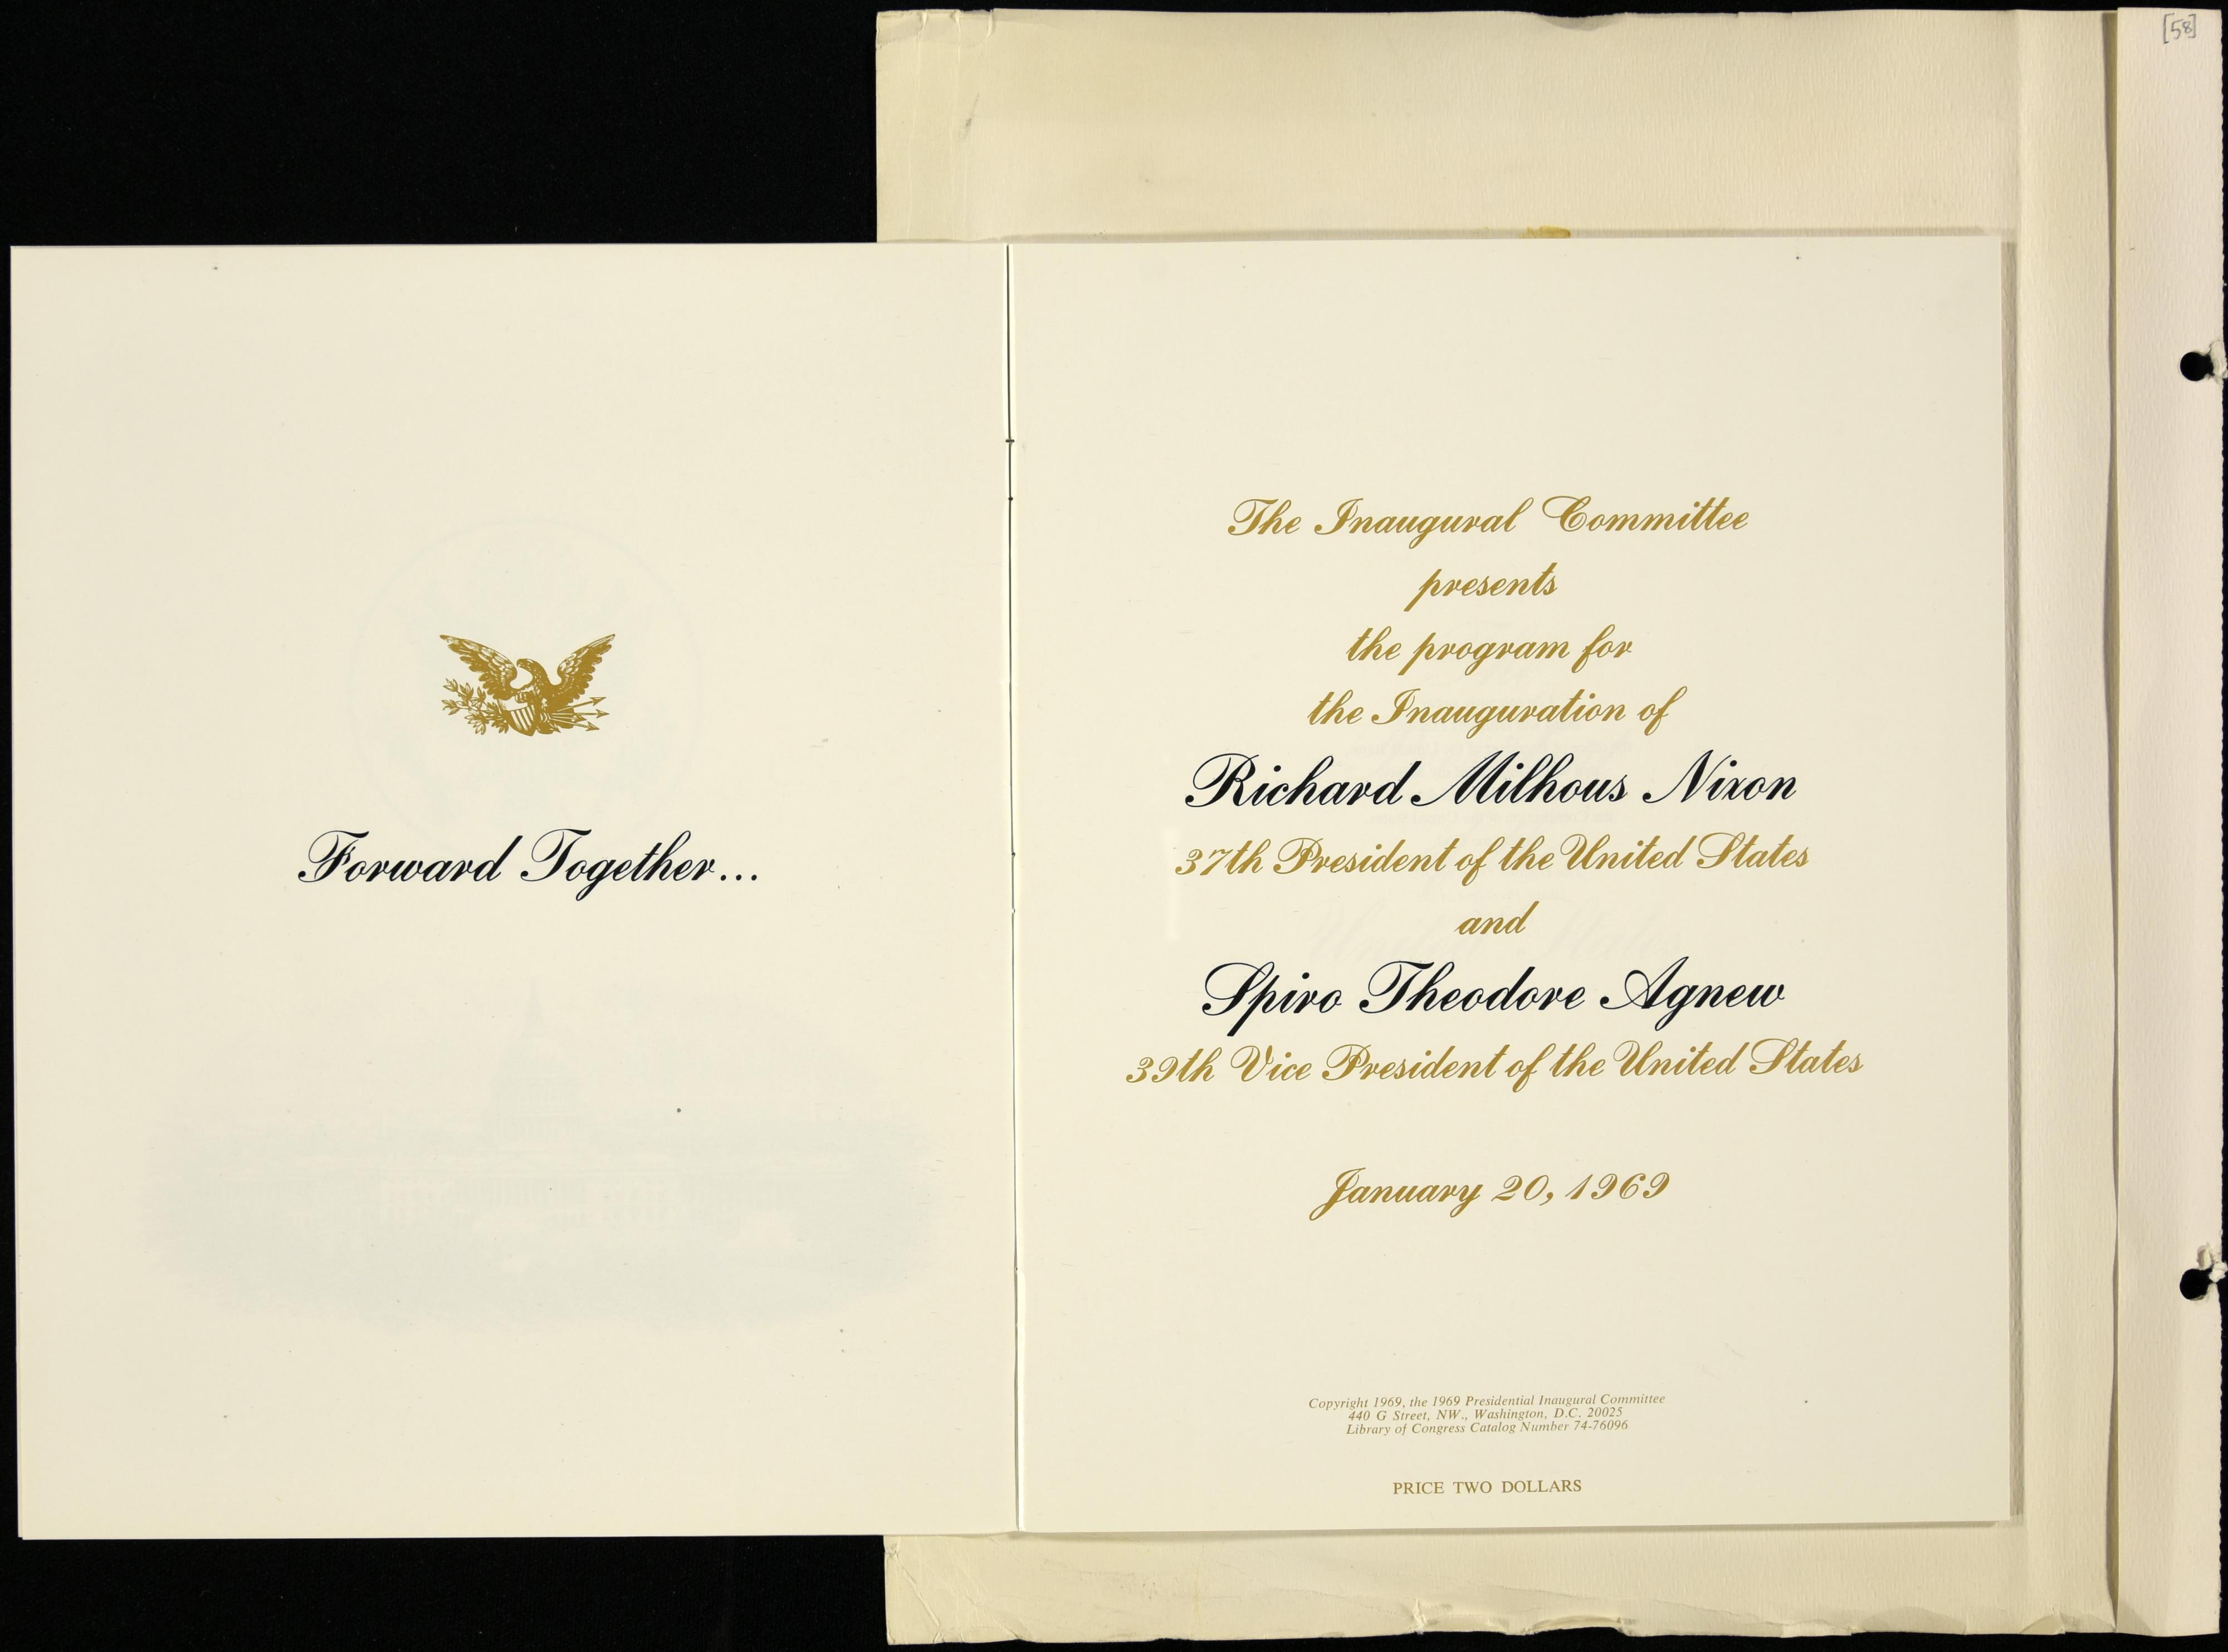 [58]
Forward Together...
The Inaugural Committee
presents
the program for
the Inauguration of
Richard Milhous Nixon
37th President of the United States
and
Spiro Theodore Agnew
39th Vice President of the United States
January 20, 1969
Copyright 1969, the 1969 Presidential Inaugural Committee
440 G Street, NW., Washington, D.C. 20025
Library of Congress Catalog Number 74-76096
PRICE TWO DOLLARS